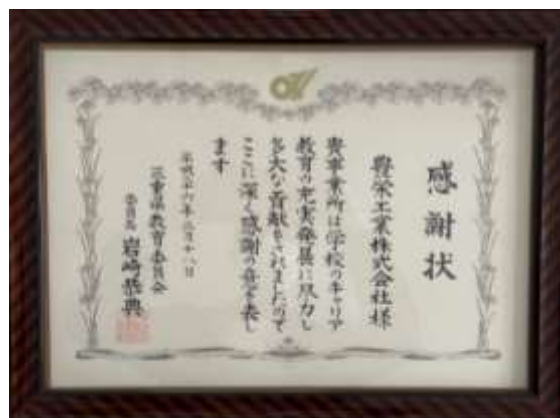 感謝状
豊栄工業株式会社様
貴事業所は学校のキャリア
教育の充実発展に尽力し
多大な貢献をされましたので
ここに深く感謝の意を表し
ます
三重県教育委員会
委員長 岩崎恭典